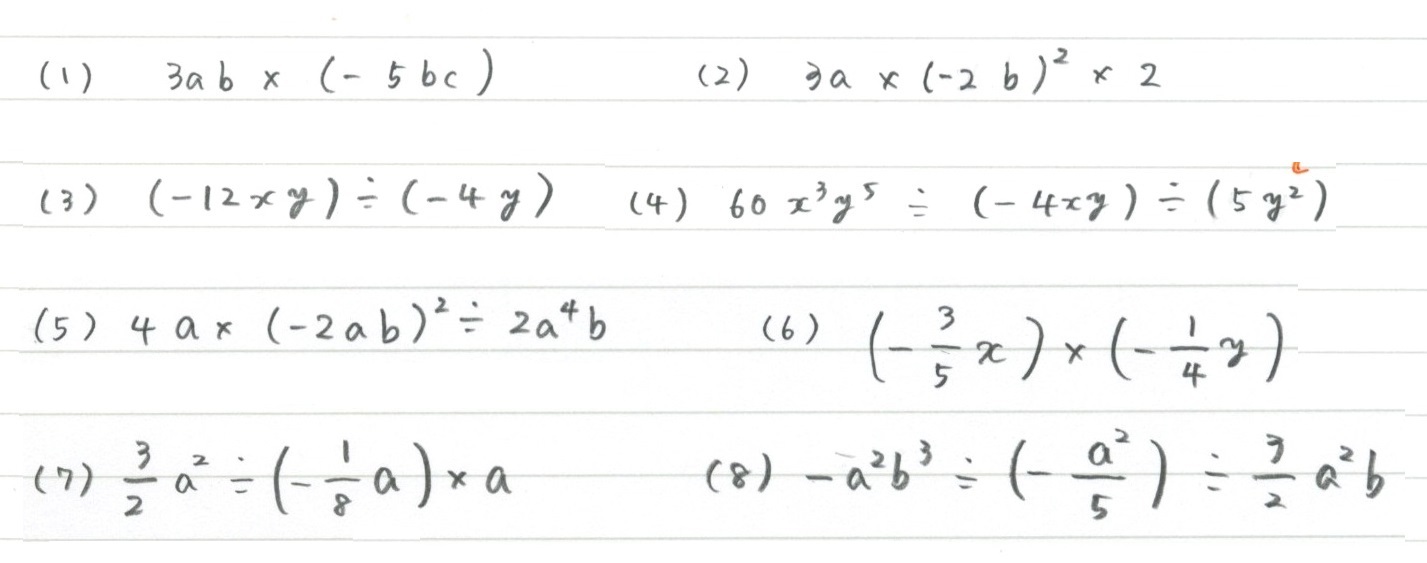 (1) 3ab × (-5bc) (2) 3a × (-2b)² × 2
(3) (-12xy) ÷ (-4y) (4) 60x³y⁵ ÷ (-4xy) ÷ (5y²)
(5) 4a × (-2ab)² ÷ 2a⁴b (6) (-3/5 x) × (-1/4 y)
(7) 3/2 a² ÷ (-1/8 a) × a (8) -a²b³ ÷ (-a²/5) ÷ 3/2 a²b